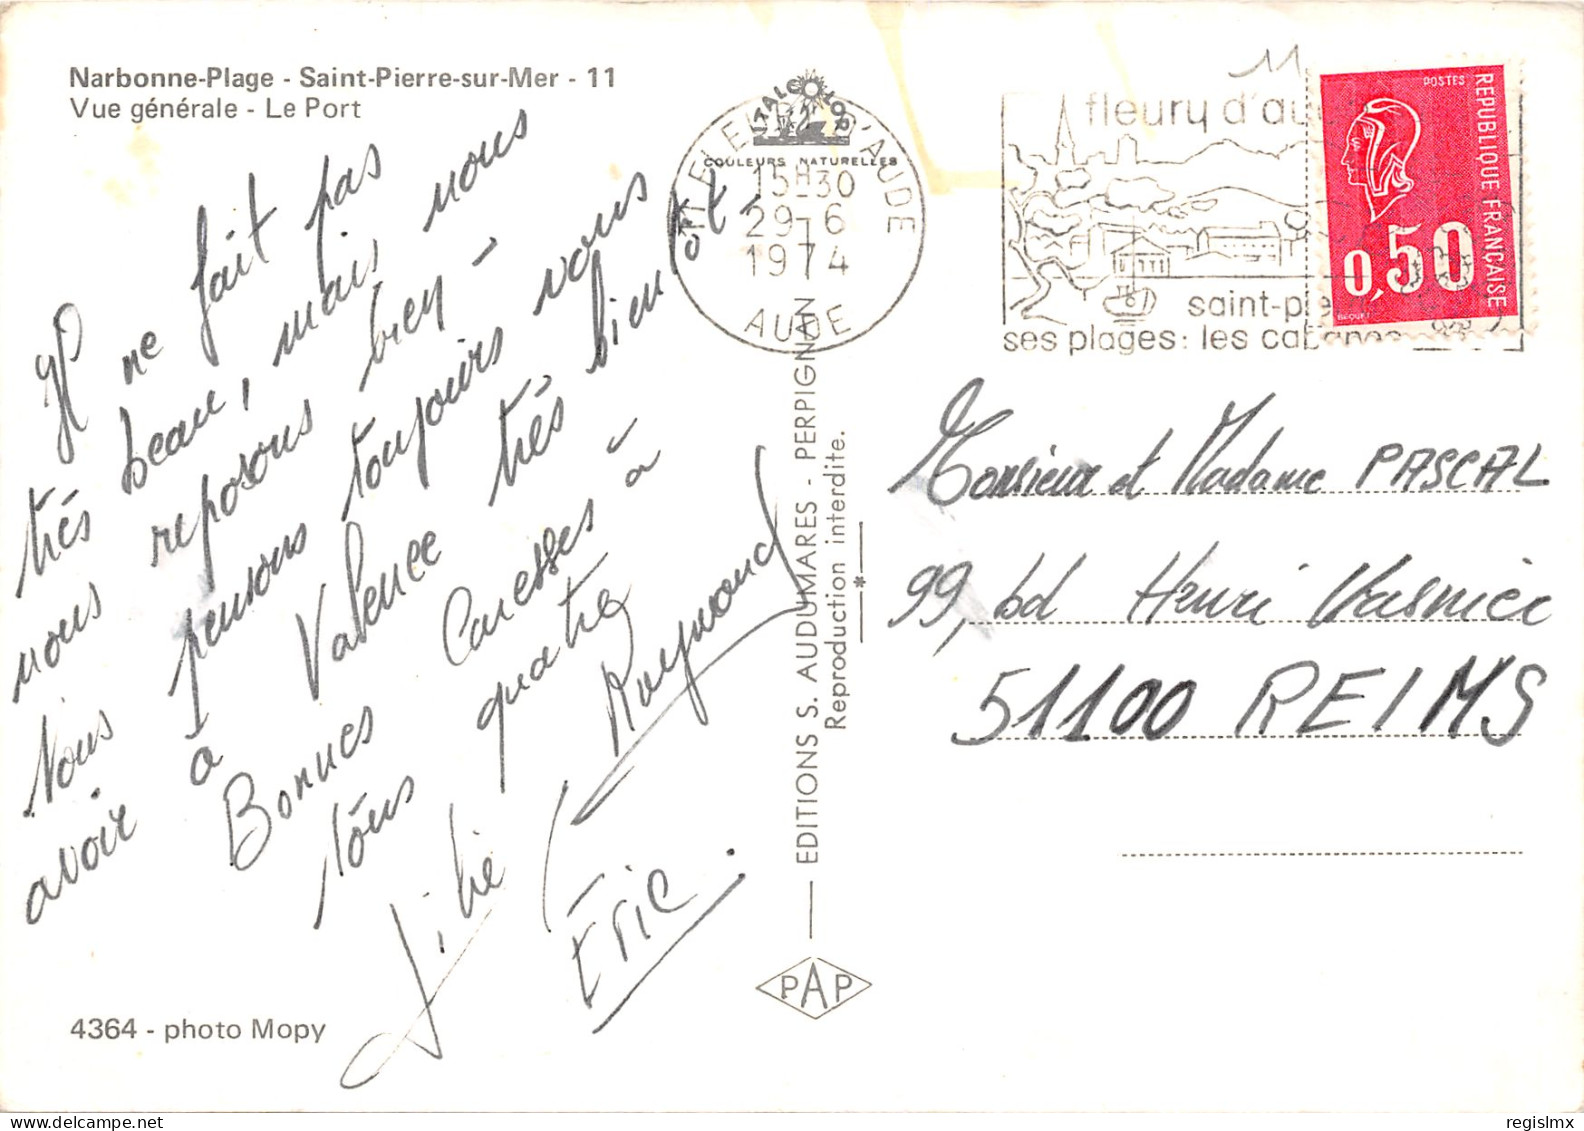 Narbonne-Plage - Saint-Pierre-sur-Mer - 11
Vue générale - Le Port
Il ne fait pas
très beau, mais nous
nous reposons bien -
Nous pensons toujours vous
avoir à Valence très bientôt -
Bonnes Caresses à
tous quatre
Raymond
Éric.
4364 - photo Mopy
ITALCOLOR
COULEURS NATURELLES
FLEURY D'AUDE
15H30
29-6
1974
AUDE
11
fleury d'au
saint-pie
ses plages: les cabanes
POSTES
REPUBLIQUE FRANÇAISE
0,50
BEQUET
EDITIONS S. AUDUMARES - PERPIGNAN
Reproduction interdite.
PAP
Monsieur et Madame PASCAL
99, bd Henri Vasnier
51100 REIMS
regislmx